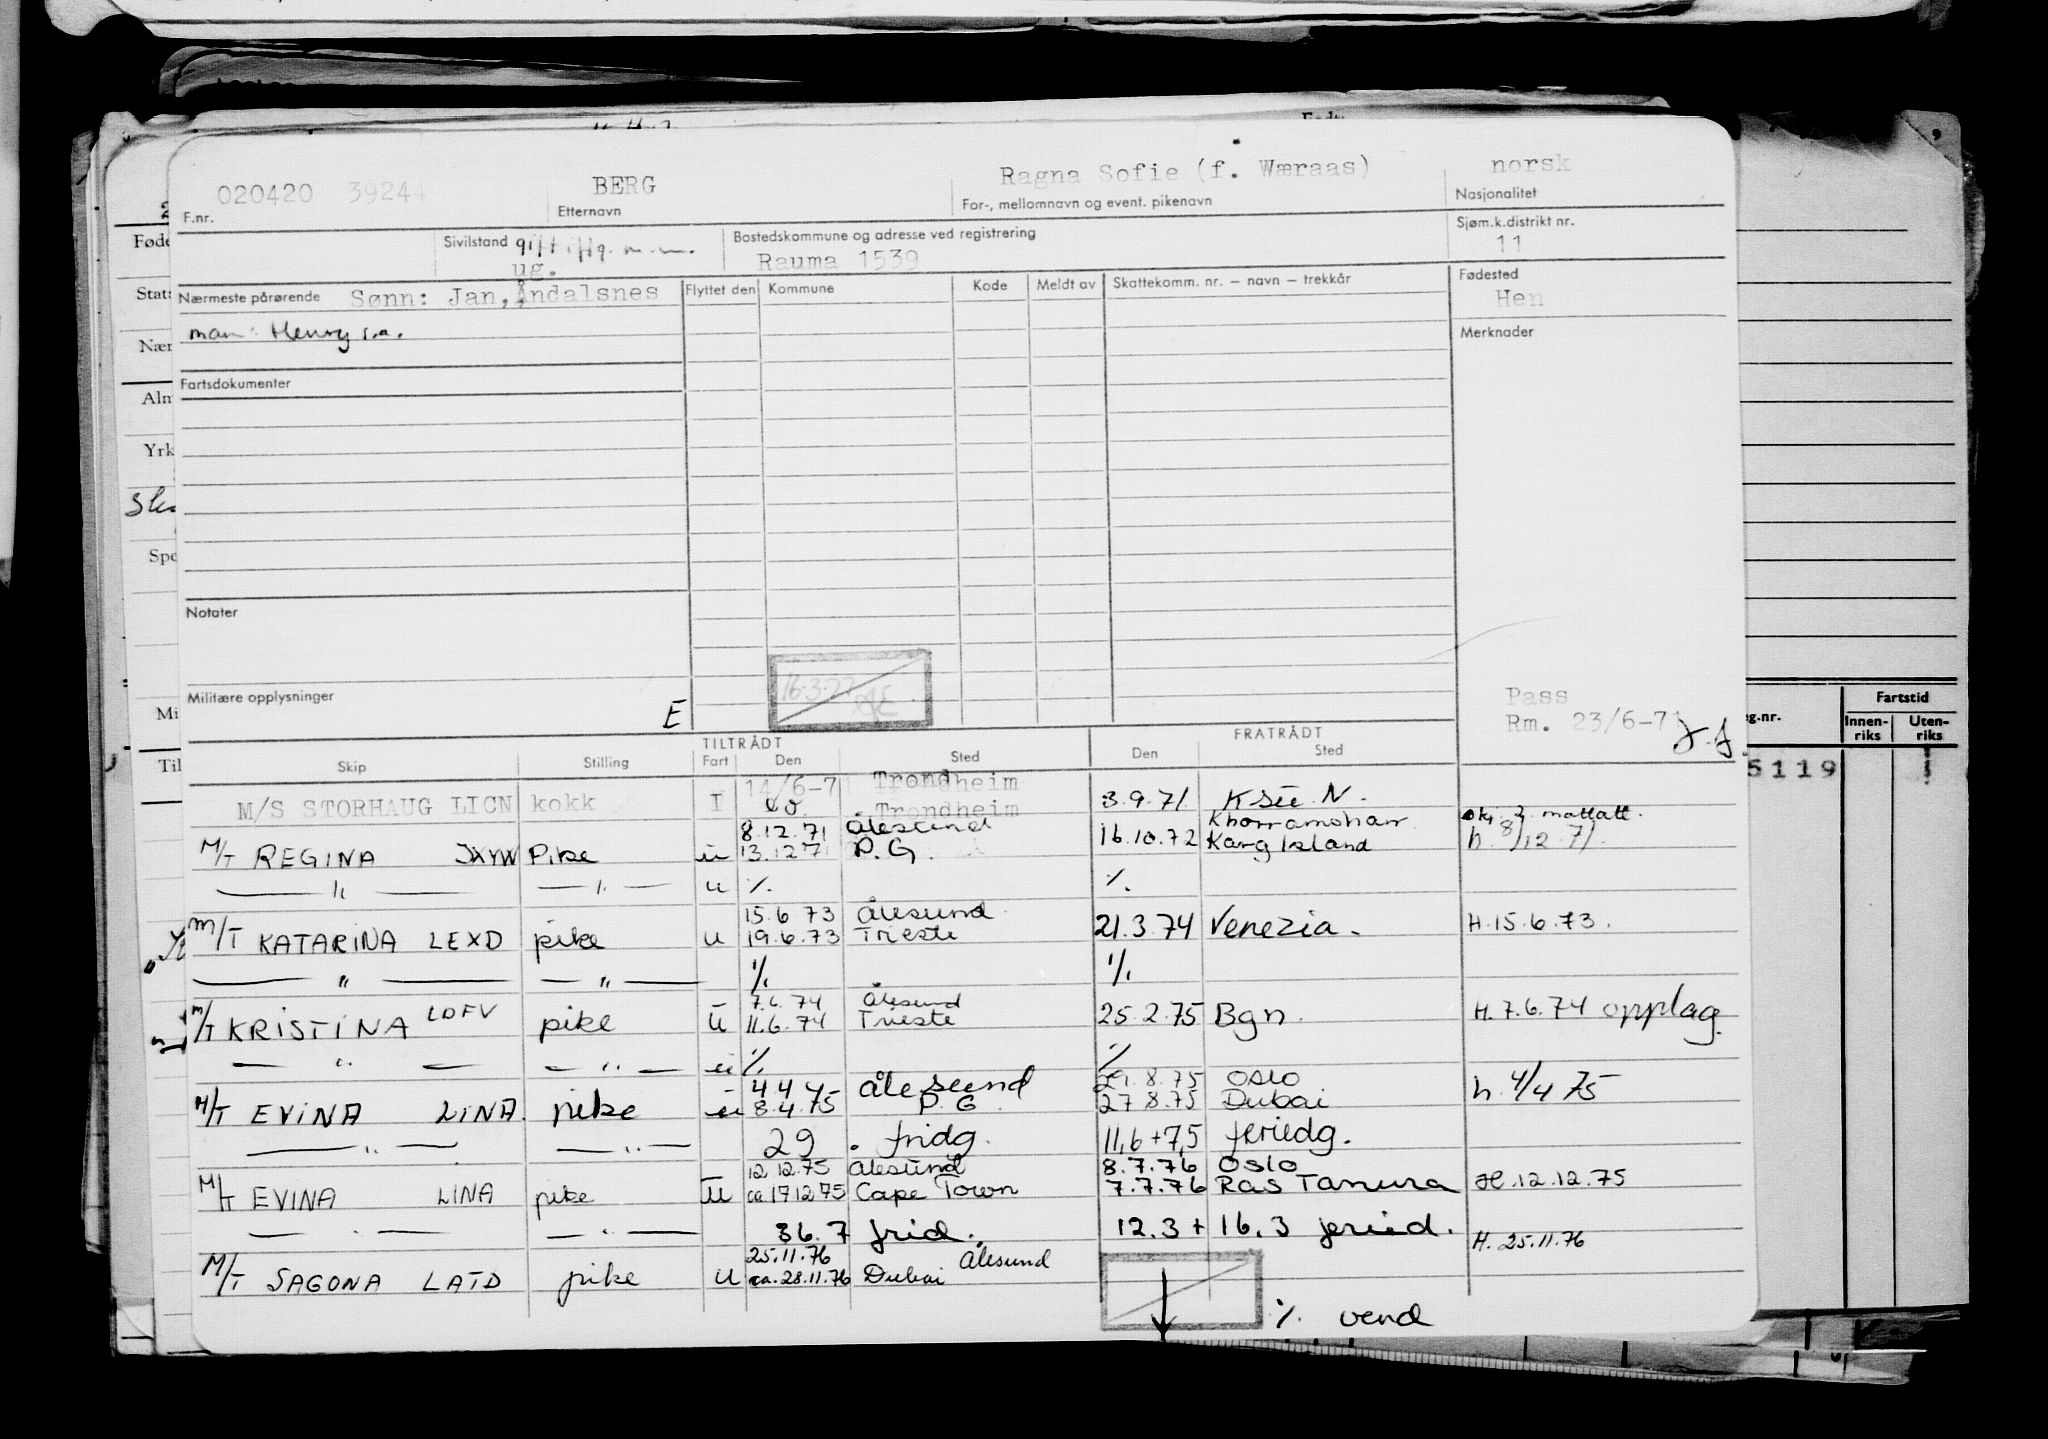 020420 39244 BERG Ragna Sofie (f. Wæraas) norsk
F.nr. Etternavn For-, mellomnavn og event. pikenavn Nasjonalitet
Sivilstand gift iflg. m.m. Bostedskommune og adresse ved registrering Sjøm.k.distrikt nr.
ug. Rauma 1539 11
Nærmeste pårørende Sønn: Jan, Åndalsnes Flyttet den Kommune Kode Meldt av Skattekomm. nr. – navn – trekkår Fødested
Hen
man: Henry s.a. Merknader
Fartsdokumenter
Notater
16.3.77
Militære opplysninger E
Pass
Rm. 23/6-71
TILTRÅDT FRATRÅDT
Skip Stilling Fart Den Sted Den Sted
14/6-71 Trondheim
M/S STORHAUG LICN kokk I do. Trondheim 3.9.71 Ksu N.
8.12.71 Ålesund Khorramshar
M/T REGINA JXYW Pike u 13.12.71 P.G. 16.10.72 Karg Island h. 8/12.71.
— " — — " — u % %
15.6.73 Ålesund
M/T KATARINA LEXD pike u 19.6.73 Trieste 21.3.74 Venezia. H.15.6.73.
— " — — " — % %
7.6.74 Ålesund
M/T KRISTINA LDFV pike u 11.6.74 Trieste 25.2.75 Bgn. H.7.6.74 opplag.
— " — — " — u % %
4.4.75 Ålesund 29.8.75 Oslo
M/T EVINA LINA. pike u 8.4.75 P.G. 27.8.75 Dubai h. 4/4 75
— " — — " — 29. fridg. 11,6+7,5 feriedg.
12.12.75 Ålesund 8.7.76 Oslo
M/T EVINA LINA pike u ca 17.12.75 Cape Town 7.7.76 Ras Tanura H.12.12.75
— " — — " — 36.7 frid. 12.3 + 16.3 feried.
25.11.76 Ålesund H. 25.11.76
M/T SAGONA LATD pike u ca. 28.11.76 Dubai
% vend
Føde
Nær
Yrk
Spe
Mi
Til
g.nr. Fartstid
Innen-riks Uten-riks
5119